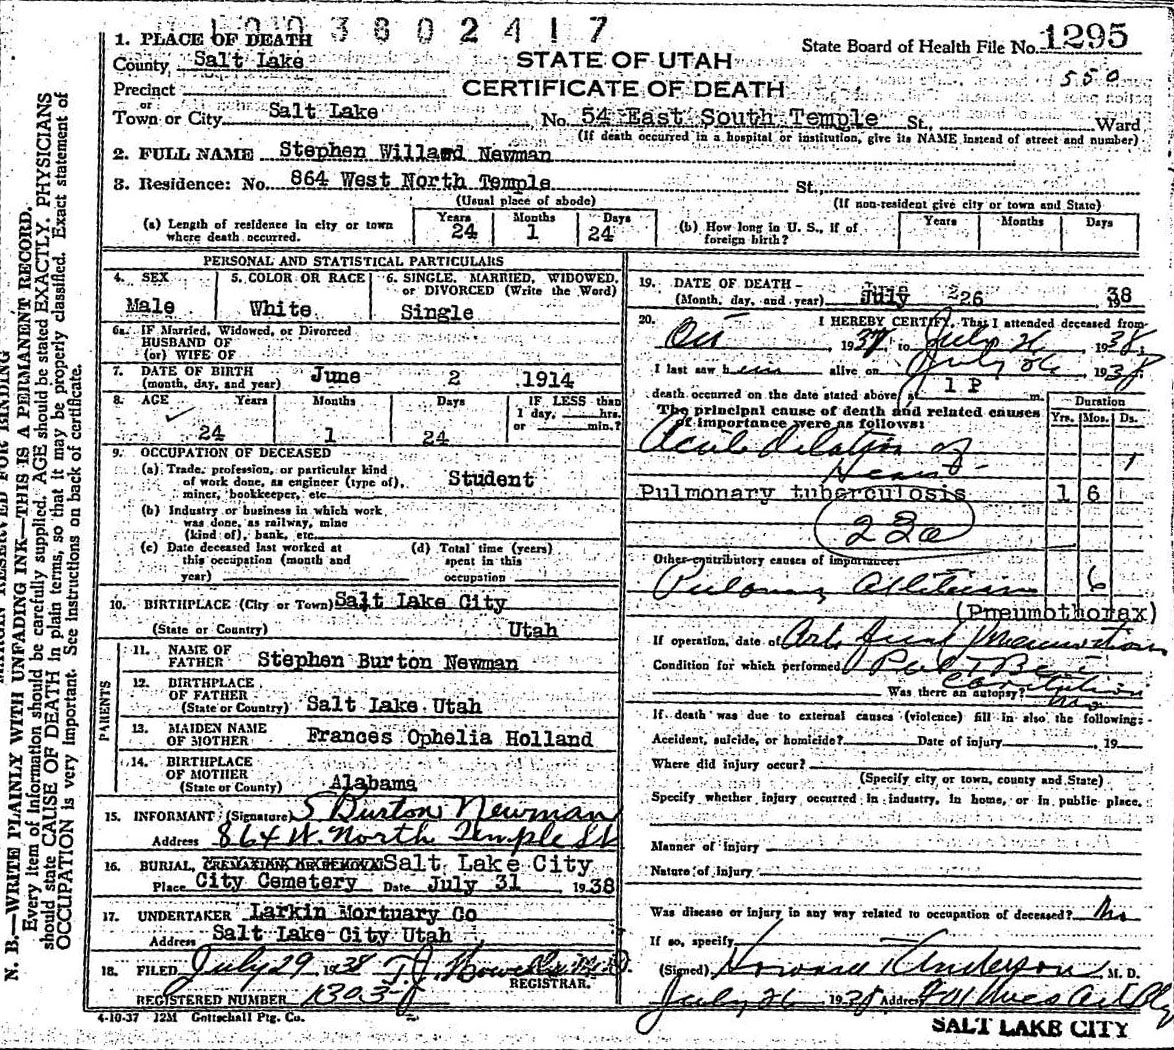 1 0 0 3 8 0 2 4 1 7
State Board of Health File No. 1295
550
STATE OF UTAH
CERTIFICATE OF DEATH
1. PLACE OF DEATH
County Salt Lake
Precinct
or
Town or City Salt Lake No. 54 East South Temple St., Ward
(If death occurred in a hospital or institution, give its NAME instead of street and number)
2. FULL NAME Stephen Willard Newman
3. Residence: No. 864 West North Temple St.,
(Usual place of abode) (If non-resident give city or town and State)
(a) Length of residence in city or town where death occurred. Years 24 Months 1 Days 24
(b) How long in U. S., if of foreign birth? Years Months Days
PERSONAL AND STATISTICAL PARTICULARS
4. SEX Male
5. COLOR OR RACE White
6. SINGLE, MARRIED, WIDOWED, or DIVORCED (Write the Word) Single
6a. IF Married, Widowed, or Divorced
HUSBAND OF
(or) WIFE OF
7. DATE OF BIRTH (month, day, and year) June 2 1914
8. AGE Years 24 Months 1 Days 24
IF LESS than 1 day, hrs. or min.?
9. OCCUPATION OF DECEASED
(a) Trade, profession, or particular kind of work done, as engineer (type of), miner, bookkeeper, etc. Student
(b) Industry or business in which work was done, as railway, mine (kind of), bank, etc.
(c) Date deceased last worked at this occupation (month and year)
(d) Total time (years) spent in this occupation
10. BIRTHPLACE (City or Town) Salt Lake City
(State or Country) Utah
PARENTS
11. NAME OF FATHER Stephen Burton Newman
12. BIRTHPLACE OF FATHER (State or Country) Salt Lake Utah
13. MAIDEN NAME OF MOTHER Frances Ophelia Holland
14. BIRTHPLACE OF MOTHER (State or Country) Alabama
15. INFORMANT (Signature) S Burton Newman
Address 864 W. North Temple St
16. BURIAL, CREMATION, OR REMOVAL Salt Lake City
Place City Cemetery Date July 31 1938
17. UNDERTAKER Larkin Mortuary Co
Address Salt Lake City Utah
18. FILED July 29 1938 REGISTRAR.
REGISTERED NUMBER
4-10-37 12M Gottschall Ptg. Co.
19. DATE OF DEATH (Month, day, and year) July 26 38
20. I HEREBY CERTIFY, That I attended deceased from
Oct 1937 to July 26 1938,
I last saw him alive on July 26 1938
death occurred on the date stated above at 1 P m.
The principal cause of death and related causes of importance were as follows:
Duration
Yrs. Mos. Ds.
Acute dilation of
Heart 1
Pulmonary tuberculosis 1 6
Other contributory causes of importance:
6
(Pneumothorax)
If operation, date of
Condition for which performed
Was there an autopsy? no
If death was due to external causes (violence) fill in also the following:
Accident, suicide, or homicide? Date of injury , 19
Where did injury occur?
(Specify city or town, county and State)
Specify whether injury occurred in industry, in home, or in public place.
Manner of injury
Nature of injury
Was disease or injury in any way related to occupation of deceased? No
If so, specify
(Signed) Howard T Anderson M. D.
July 26 1938 Address
SALT LAKE CITY
N. B.—WRITE PLAINLY WITH UNFADING INK—THIS IS A PERMANENT RECORD.
Every item of information should be carefully supplied. AGE should be stated EXACTLY. PHYSICIANS
should state CAUSE OF DEATH in plain terms, so that it may be properly classified. Exact statement of
OCCUPATION is very important. See instructions on back of certificate.